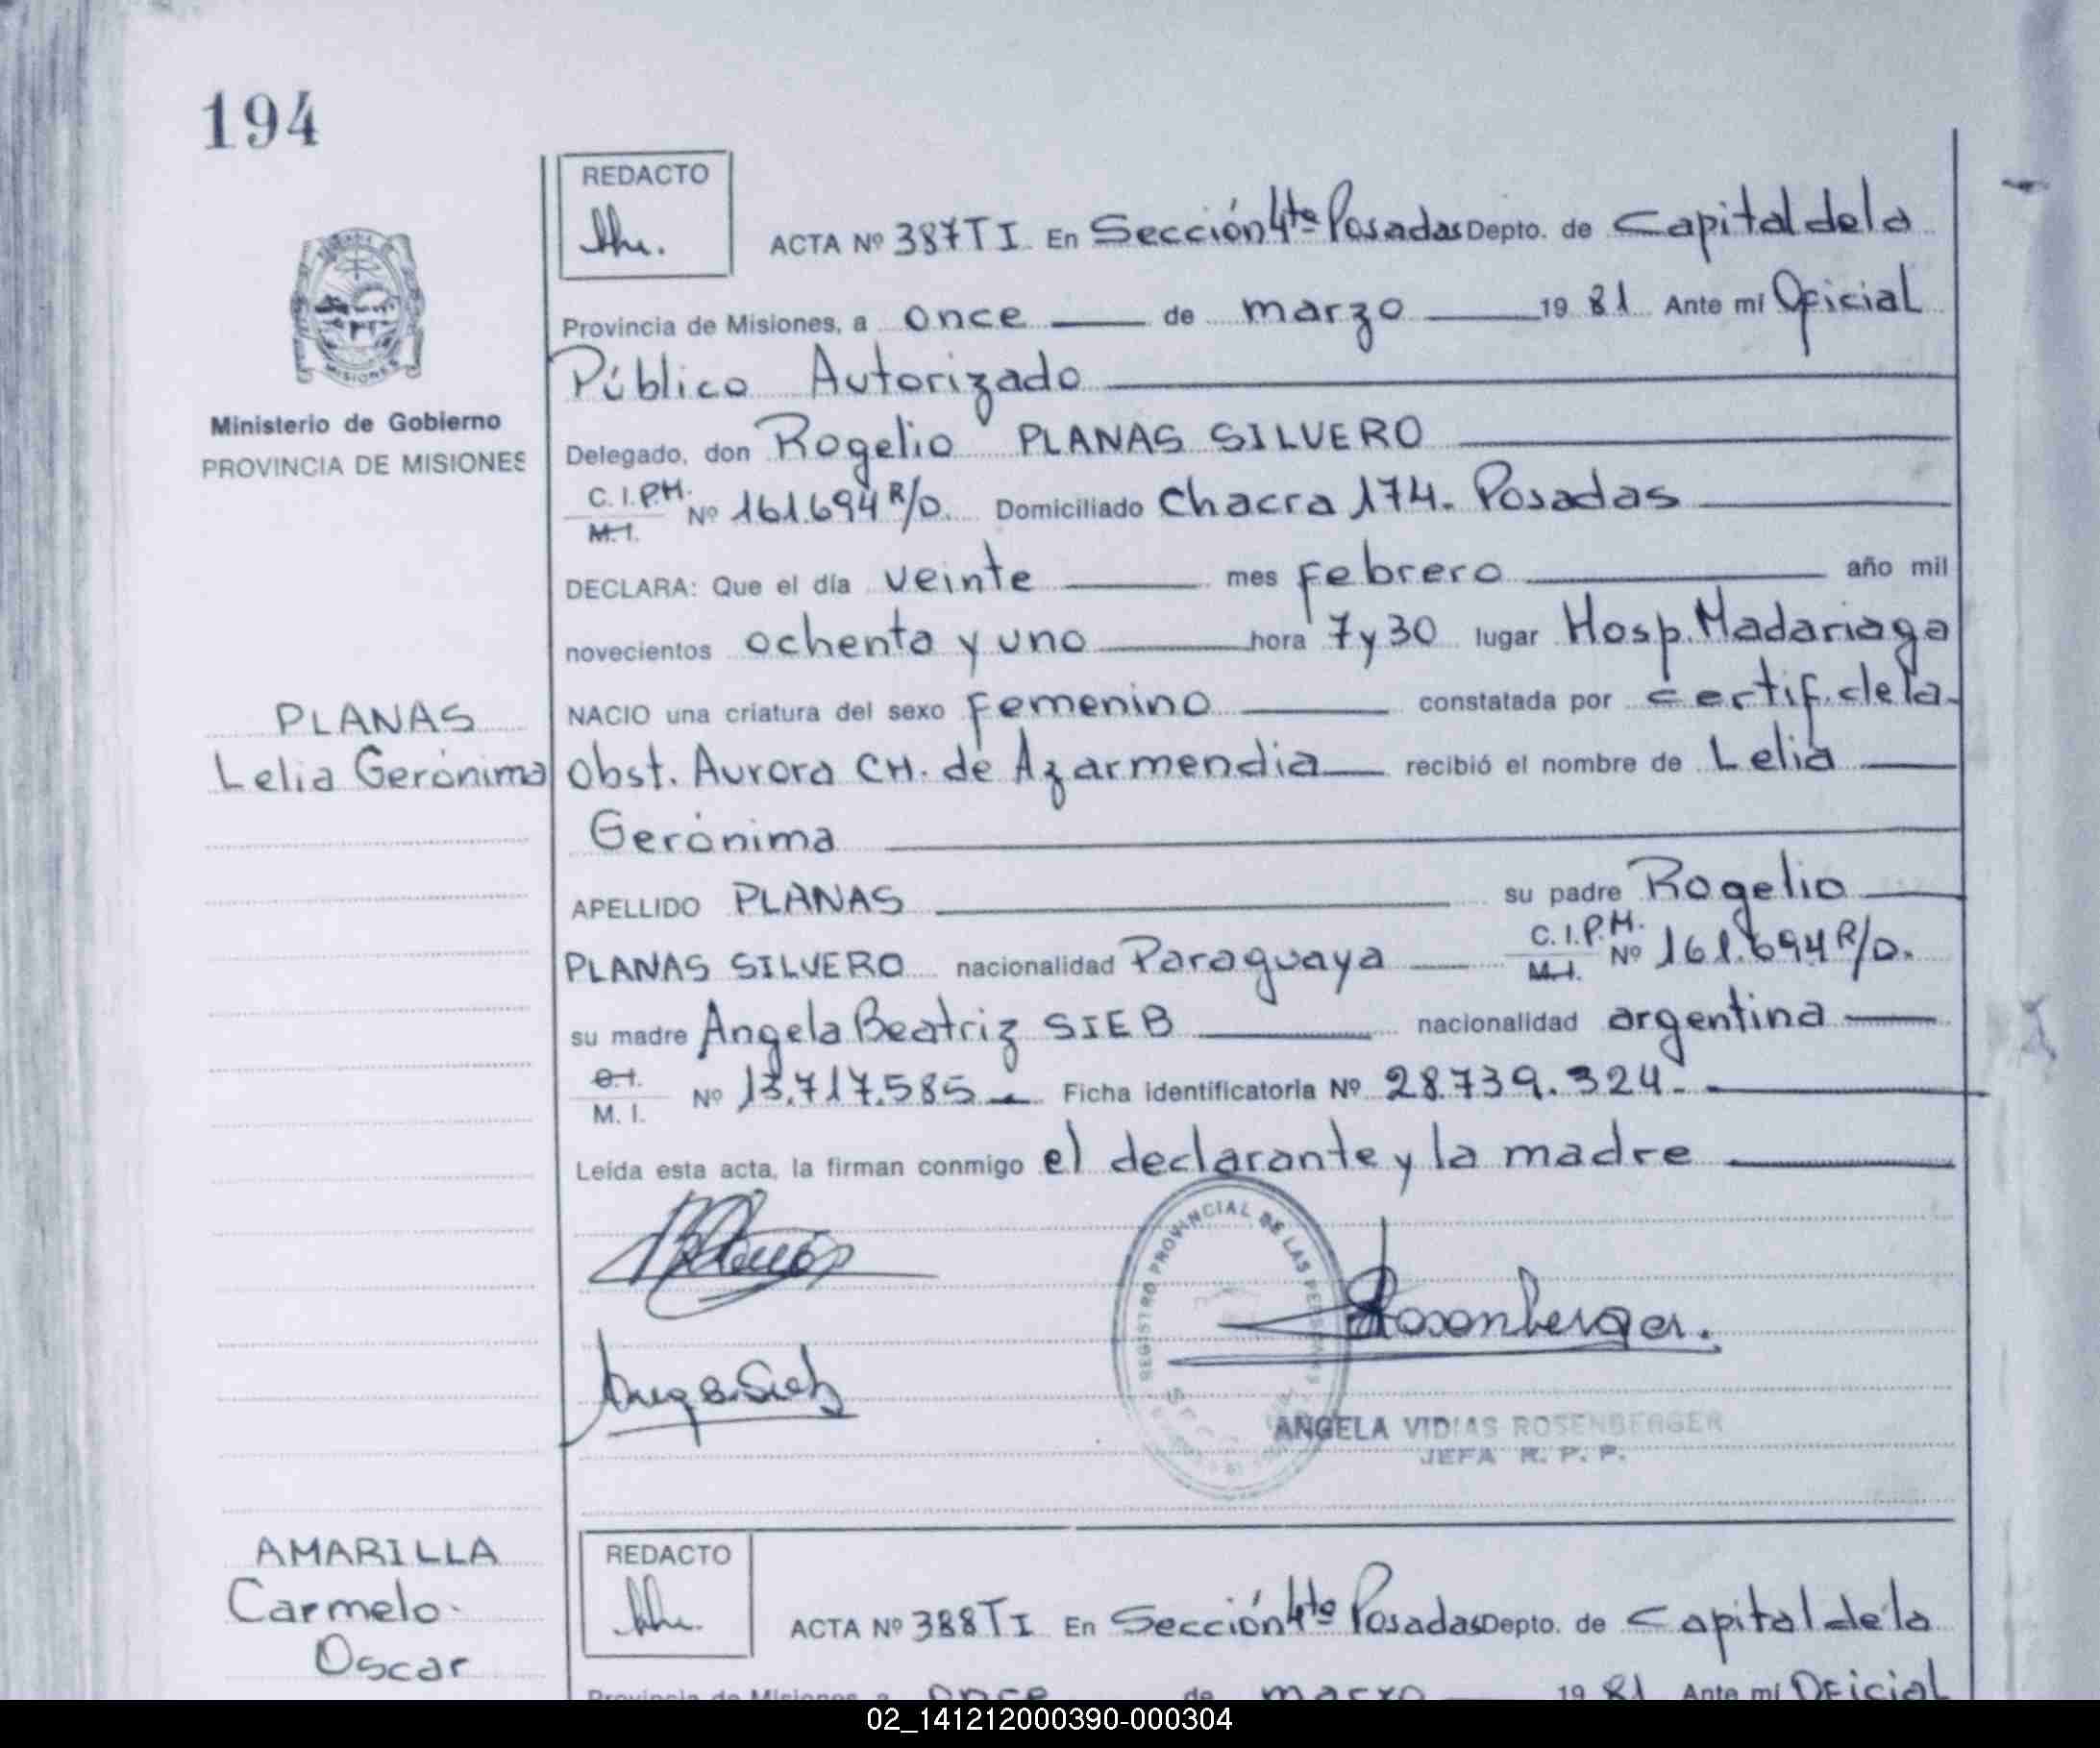 194
REDACTO
ACTA Nº 387 T I En Sección 4ta Posadas Depto. de Capital de la
Provincia de Misiones, a once de marzo 19 81 Ante mí Oficial
Público Autorizado
Ministerio de Gobierno
PROVINCIA DE MISIONES
Delegado, don Rogelio PLANAS SILVERO
C. I. P.M.
M. I.
Nº 161.694 R/D. Domiciliado Chacra 174. Posadas
DECLARA: Que el día veinte mes febrero año mil
novecientos ochenta y uno hora 7 y 30 lugar Hosp. Madariaga
PLANAS
Lelia Gerónima
NACIO una criatura del sexo femenino constatada por certif. de la
Obst. Aurora CH. de Azarmendia recibió el nombre de Lelia
Gerónima
APELLIDO PLANAS su padre Rogelio
PLANAS SILVERO nacionalidad Paraguaya C. I. P.M. M. I. Nº 161.694 R/D.
su madre Angela Beatriz SIEB nacionalidad argentina
C. I.
M. I.
Nº 13.717.585 Ficha identificatoria Nº 28.739.324.-
Leída esta acta, la firman conmigo el declarante y la madre
REGISTRO PROVINCIAL DE LAS PERSONAS
Rosenberger.
ANGELA VIDIAS ROSENBERGER
JEFA R. P. P.
AMARILLA
Carmelo
Oscar
REDACTO
ACTA Nº 388 T I En Sección 4ta Posadas Depto. de Capital de la
Provincia de Misiones, a once de marzo 19 81 Ante mí Oficial
02_141212000390-000304